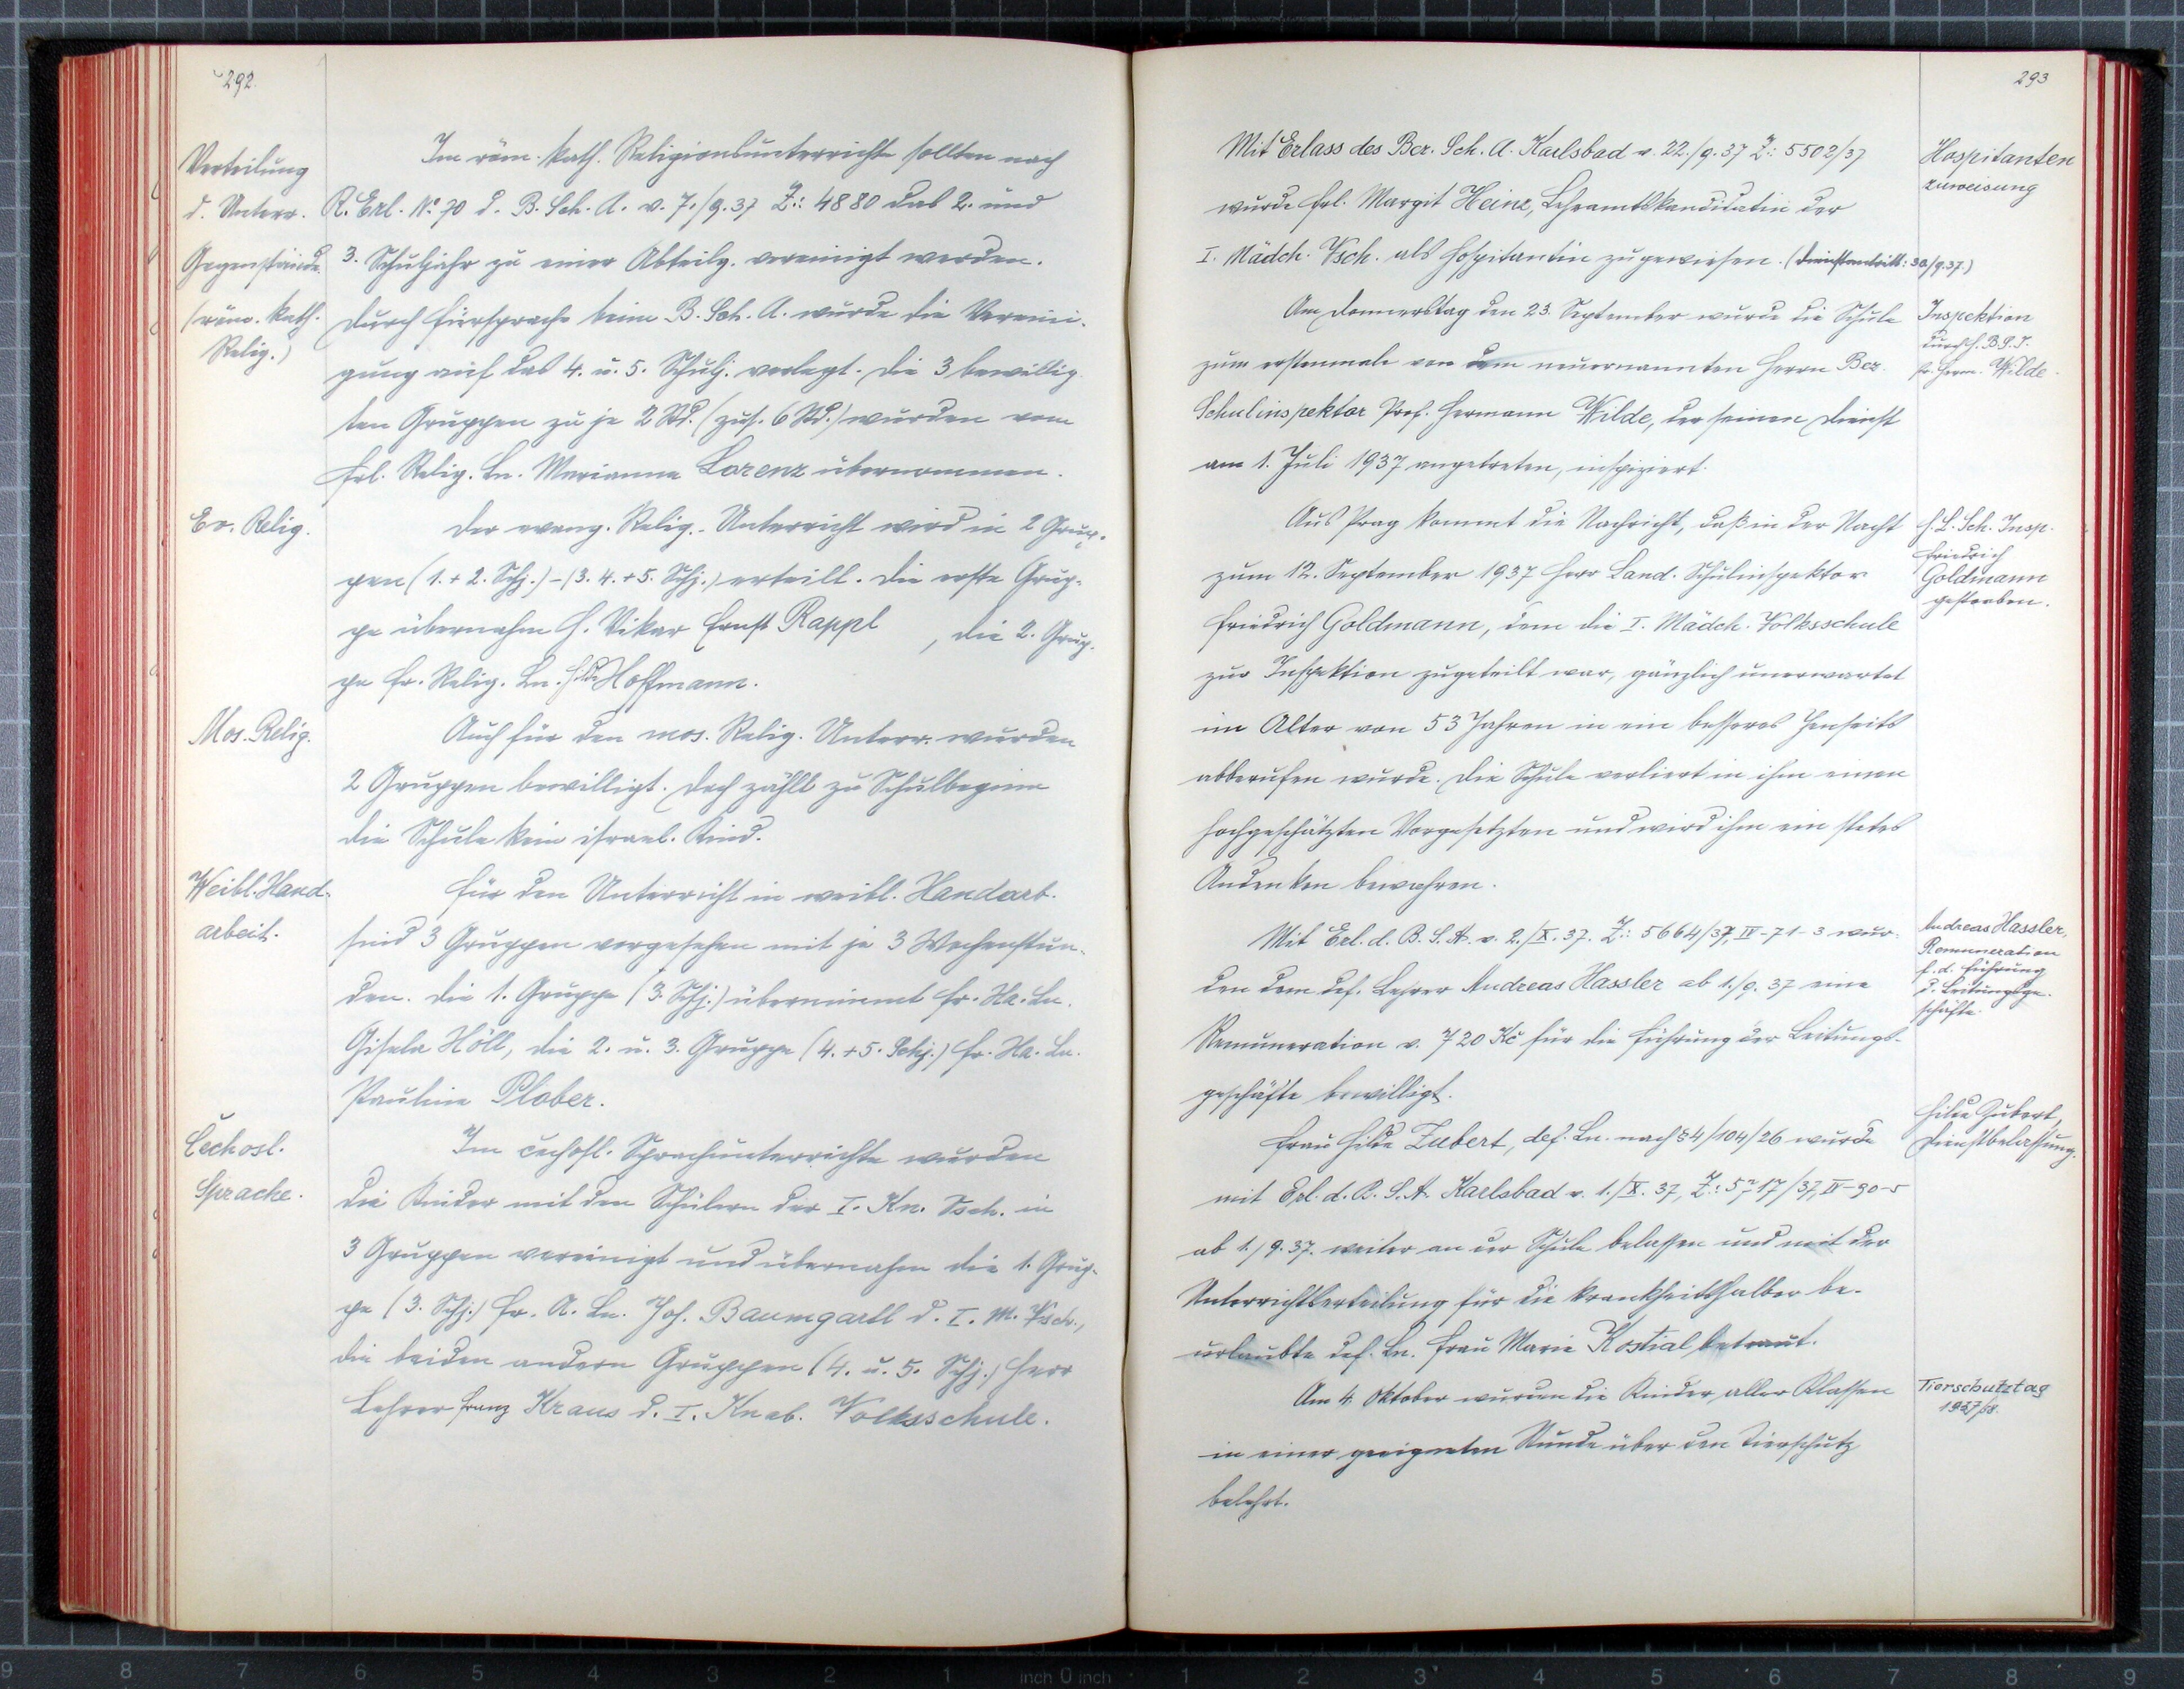 292.
Verteilung
d. Unterr.
Gegenstände
(röm. kath.
Relig.)
Im röm. kath. Religionsunterrichte sollten nach
R. Erl. No. 70 d. B. Sch. A. v. 7./9.37 Z.: 4880 das 2. und
3. Schuljahr zu einer Abteilg. vereinigt werden.
Durch Fürsprache beim B. Sch. A. wurde die Vereini-
gung auf das 4. u. 5. Schulj. verlegt. Die 3 bewillig-
ten Gruppen zu je 2 Std. (zus. 6 Std.) wurden vom
Frl. Relig. Ln. Marianne Lorenz übernommen.
Ev. Relig.
Der evang. Relig.-Unterricht wird in 2 Grup-
pen (1.+2. Schj.)-(3. 4.+5. Schj.) erteilt. Die erste Grup-
pe übernahm H. Vikar Ernst Rappl, die 2. Grup-
pe Fr. Relig. Ln. Hilde Hoffmann.
Mos. Relig.
Auch für den mos. Relig. Unterr. wurden
2 Gruppen bewilligt. Doch zählt zu Schulbeginn
die Schule kein israel. Kind.
Weibl. Hand-
arbeit.
Für den Unterricht in weibl. Handarb.
sind 3 Gruppen vorgesehen mit je 3 Wochenstun-
den. Die 1. Gruppe (3. Schj.) übernimmt Fr. Ha. Ln.
Gisela Höll, die 2. u. 3. Gruppe (4.+5. Schj.) Fr. Ha. Ln.
Pauline Plober.
Čechosl.
Sprache.
Im čechosl. Sprachunterrichte wurden
die Kinder mit den Schülern der I. Kn. Vsch. in
3 Gruppen vereinigt und übernahm die 1. Grup-
pe (3. Schj.) Fr. A. Ln. Joh. Baumgartl d. I. M. Vsch.,
die beiden andern Gruppen (4. u. 5. Schj.) Herr
Lehrer Franz Kraus d. I. Knab. Volksschule.
293
Mit Erlass des Bez. Sch. A. Karlsbad v. 22./9.37 Z.: 5502/37
wurde Frl. Margit Heinz, Lehramtskandidatin der
I. Mädch. Vsch. als Hospitantin zugewiesen. (Dienstantritt: 30/9.37.)
Hospitanten
zuweisung
Am Donnerstag den 23. September wurde die Schule
zum erstenmale von dem neuernannten Herrn Bez.
Schulinspektor Prof. Hermann Wilde, der seinen Dienst
am 1. Juli 1937 angetreten, inspiziert.
Inspektion
durch H. B.S.I.
Pr. Herm. Wilde.
Aus Prag kommt die Nachricht, daß in der Nacht
zum 12. September 1937 Herr Land. Schulinspektor
Friedrich Goldmann, dem die I. Mädch. Volksschule
zur Inspektion zugeteilt war, gänzlich unerwartet
im Alter von 53 Jahren in ein besseres Jenseits
abberufen wurde. Die Schule verliert in ihm einen
hochgeschätzten Vorgesetzten und wird ihm ein stetes
Andenken bewahren.
H. L. Sch. Insp.
Friedrich
Goldmann
gestorben.
Mit Erl. d. B. S. A. v. 2./X. 37. Z.: 5664/37, IV-71-3 wur-
den dem def. Lehrer Andreas Hassler ab 1./9. 37 eine
Remuneration v. 720 Kč für die Führung der Leitungs-
geschäfte bewilligt.
Andreas Hassler,
Remuneration
f. d. Führung
d. Leitungsge-
schäfte.
Frau Hilde Zubert, def. Ln. nach § 4/104/26 wurde
mit Erl. d. B. S. A. Karlsbad v. 1./X. 37, Z.: 5717/37, IV-90-5
ab 1./9.37. weiter an der Schule belassen und mit der
Unterrichtserteilung für die krankheitshalber be-
urlaubte def. Ln. Frau Marie Kostial betraut.
Hilde Zubert,
Dienstbelassung.
Am 4. Oktober wurden die Kinder aller Klassen
in einer geeigneten Stunde über den Tierschutz
belehrt.
Tierschutztag
1937/38.
9 8 7 6 5 4 3 2 1 inch 0 inch 1 2 3 4 5 6 7 8 9